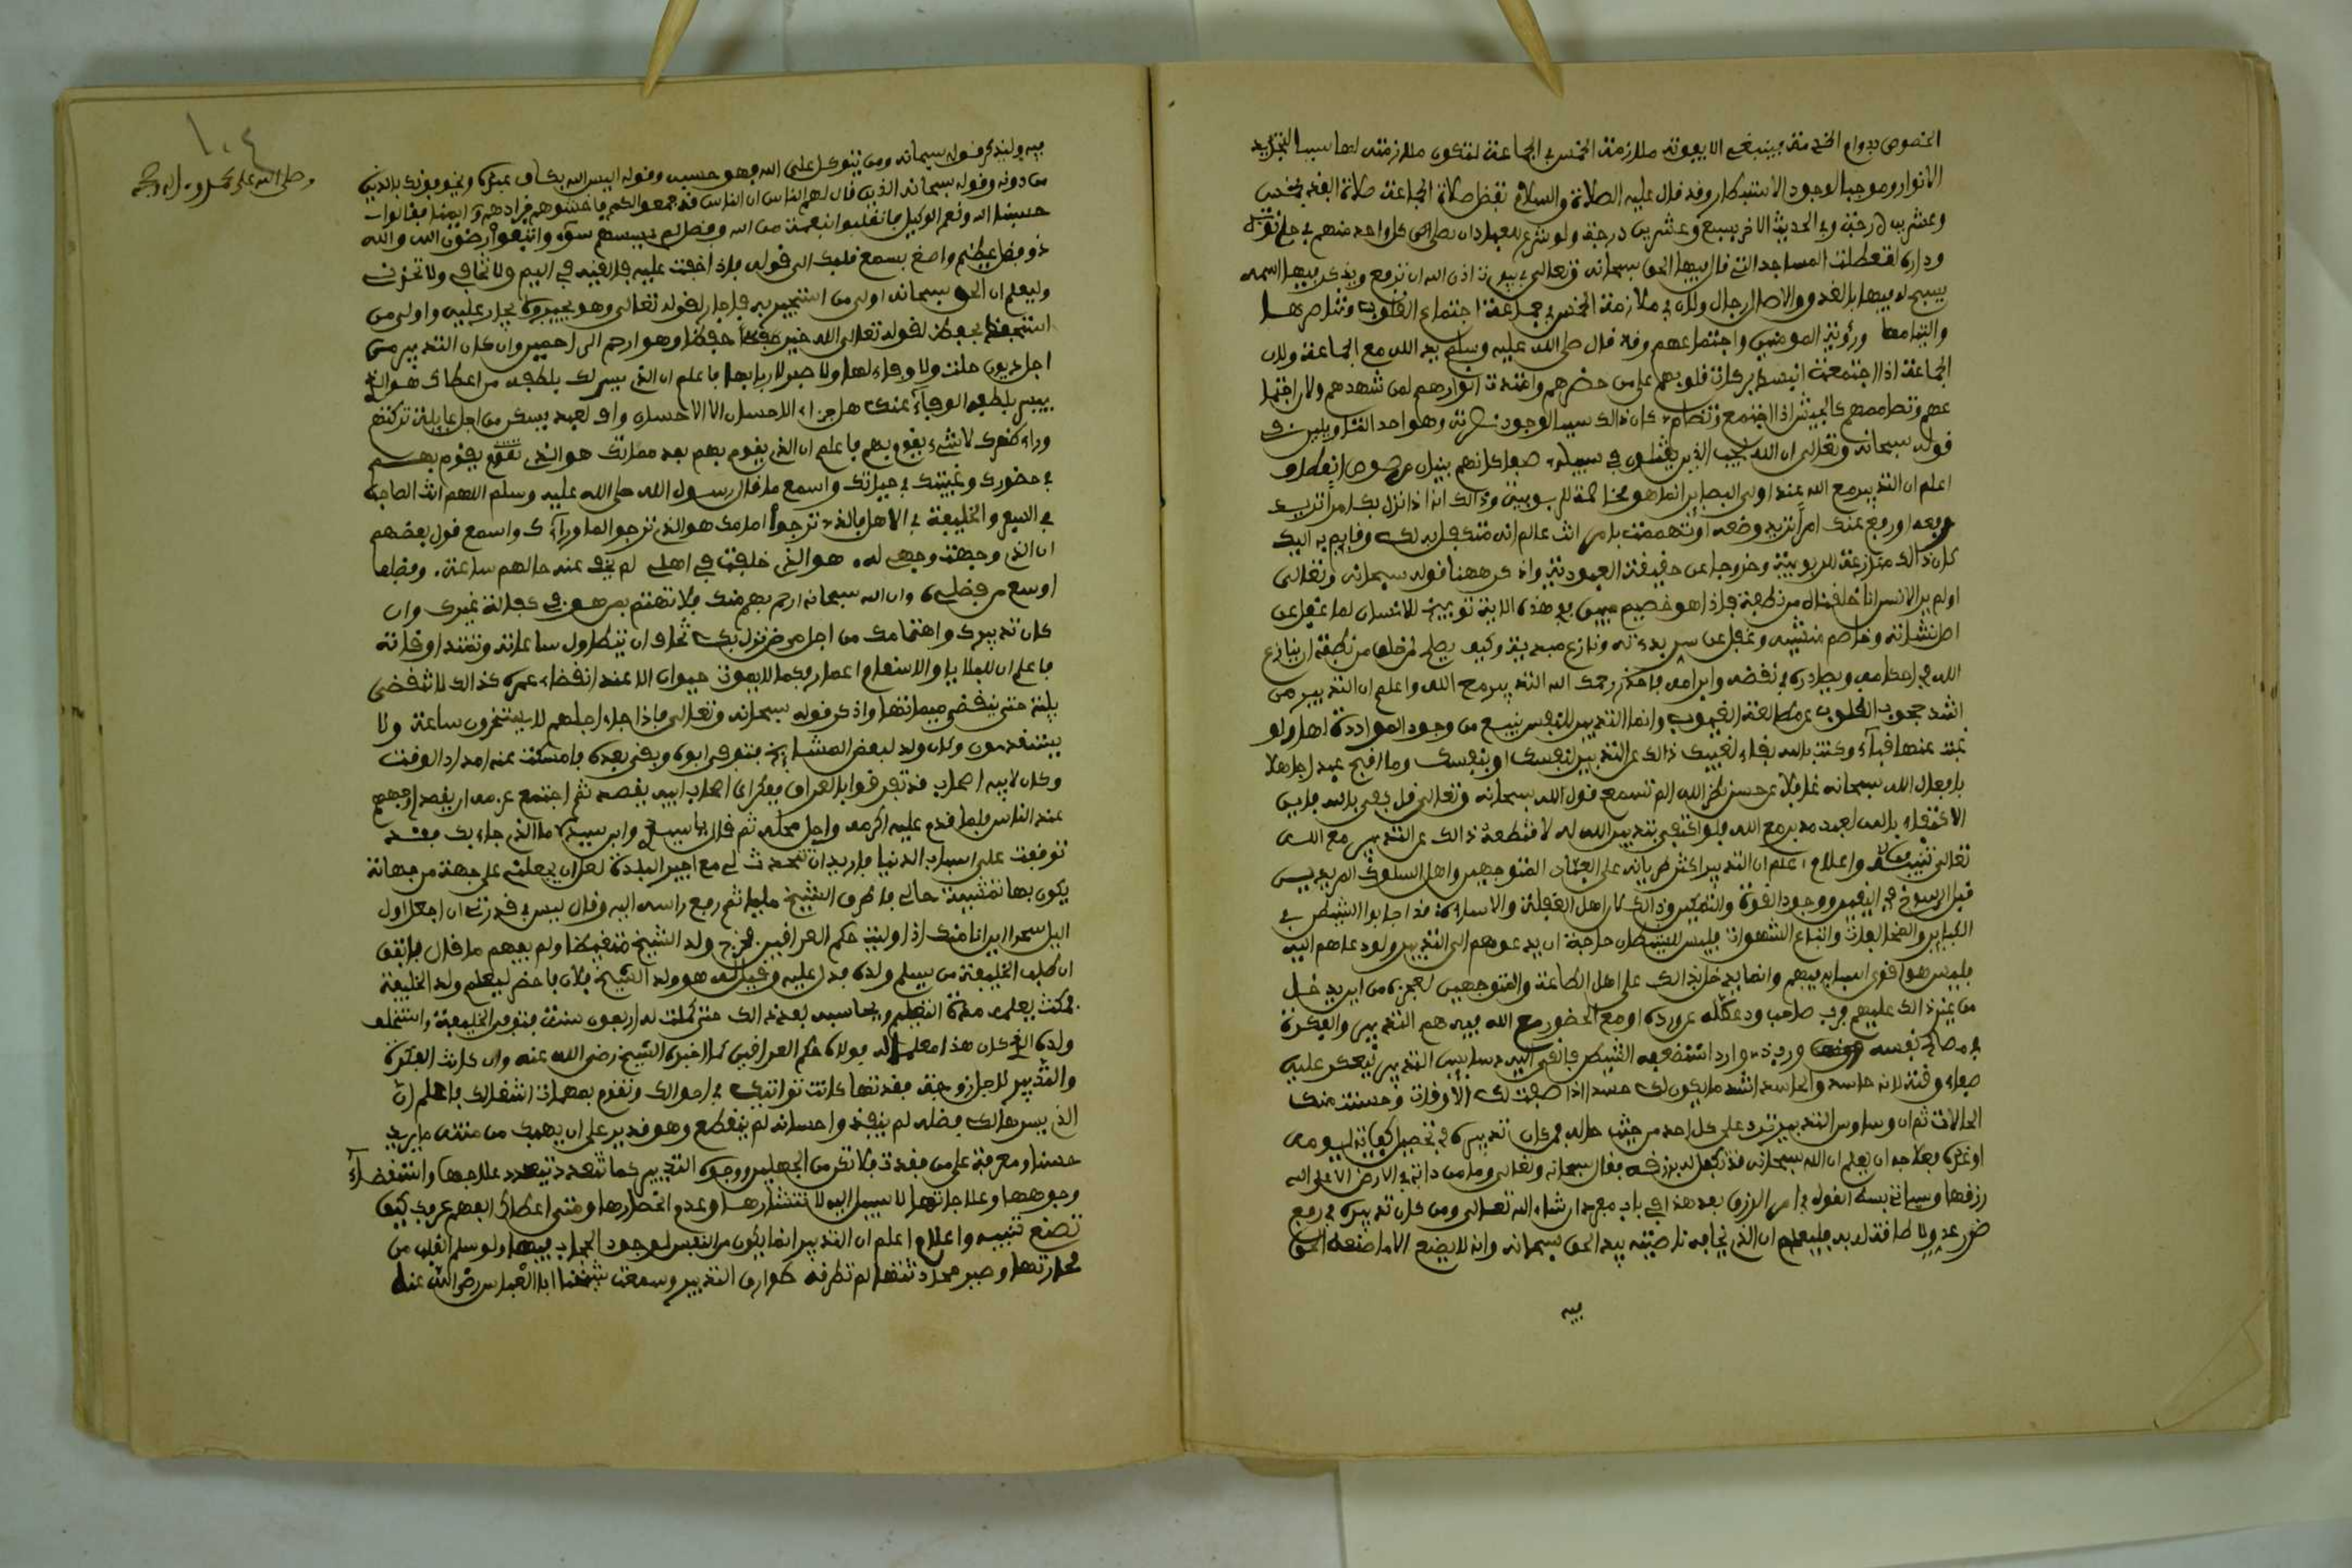 الخصوص بدوام الخدمة فينبغي الا يفوته ملازمة الخمس في الجماعة لتكون ملازمته لها سببا لتجديد
الانوار وموجبا لوجود الاستبصار وقد قال عليه الصلاة والسلام تفضل صلاة الجماعة صلاة الفذ بخمس
وعشرين درجة وفي الحديث الاخر بسبع وعشرين درجة ولو شرع للعباد ان يصلي كل واحد منهم في حانوته
وداره لتعطلت المساجد التي قال فيها الحق سبحانه وتعالى في بيوت اذن الله ان ترفع ويذكر فيها اسمه
يسبح له فيها بالغدو والاصال رجال ولان في ملازمة الخمس في جماعة اجتماع القلوب وتناصرها
والتيامها ورؤية المومنين واجتماعهم وقد قال صلى الله عليه وسلم يد الله مع الجماعة ولان
الجماعة اذا اجتمعت انبسطت بركات قلوبهم على من حضرهم وامتدت انوارهم لمن شهدهم وكان اجتما
عهم وتضامهم كالجيش اذا اجتمع وتضام كان ذالك سببا لوجود نصرته وهو احد التاويلين في
قوله سبحانه وتعالى ان الله يحب الذين يقتلون في سبيله صفا كانهم بنيان مرصوص انعطاف
اعلم ان التدبير مع الله عند اولي البصاير انما هو مخاصمة للربوبية وذالك انه اذا نزل بك امرا تريد
رفعه او رفع عنك امرا تريد وضعه او تهممت بامر انت عالم انه متكفل به لك وقايم به اليك
كان ذالك منازعة للربوبية وخروجا عن حقيقة العبودية واذكر ههنا قوله سبحانه وتعالى
اولم ير الانسان انا خلقناه من نطفة فاذا هو خصيم مبين ففي هذه الاية توبيخ للانسان لما غفل عن
اصل نشاته وخاصم منشيه وغفل عن سر بدءته ونازع مبديه وكيف يصلح لمن خلق من نطفة ان ينازع
الله في احكامه ويضادده في نقضه وابرامه فاحذر رحمك الله التدبير مع الله واعلم ان التدبير من
اشد حجوب القلوب عن مطالعة الغيوب وانما التدبير للنفس ينبع من وجود المواددة لها ولو
غبت عنها فناء وكنت بالله بقاء لغيبك ذالك عن التدبير لنفسك او بنفسك وما اقبح عبد اجاهلا
بافعال الله سبحانه غافلا عن حسن نظر الله الم تسمع قول الله سبحانه وتعالى قل كفى بالله فاين
الاكتفاء بالله لعبد مدبر مع الله فلو اكتفى بتدبير الله له لاقتطعه ذالك عن التدبير مع الله
تعالى تنبيه واعلام اعلم ان التدبير اكثر طريانه على العباد المتوجهين واهل السلوك المريدين
قبل الرسوخ في اليقين ووجود القوة والتمكين وذالك لان اهل الغفلة والاساءة قد اجابوا الشيطان في
الكباير والمخالفات واتباع الشهوات فليس للشيطان حاجة ان يدعوهم الى التدبير ولو دعاهم اليه
فليس هو اقوى اسبابه فيهم وانما يدخل بذالك على اهل الطاعة والمتوجهين لعجزه من ان يدخل
من غير ذالك عليهم فرب صاحب ورد عطله عن ورده او مع الحضور مع الله فيه هم التدبير والفكرة
في مصالح نفسه ورب ذي وارد استضعفه الشيطان فالقى اليه دسايس التدبير ليعكر عليه
صفاء وقته لانه حاسد والحاسد اشد ما يكون لك حسدا اذا صفت لك الاوقات وحسنت منك
الحالات ثم ان وساوس التدبير ترد على كل احد من حيث حاله فمن كان تدبيره في تحصيل كفاية ليومه
او غده فعلاجه ان يعلم ان الله سبحانه قد تكفل له برزقه فقال سبحانه وتعالى وما من دابة في الارض الا على الله
رزقها وسياتي بسط القول في امر الرزق بعد هذا في باب مفرد ان شاء الله تعالى ومن كان تدبيره في رفع
ضرر عدو لا طاقة له به فليعلم ان الذي يخافه ناصيته بيد الحق سبحانه وانه لا يصنع الا ما صنعه الحق
فيه
١٠٤
وصلى الله على محمد وءاله وصحبه
فيه وليذكر قوله سبحانه ومن يتوكل على الله فهو حسبه وقوله اليس الله بكاف عبده ويخوفونك بالذين
من دونه وقوله سبحانه الذين قال لهم الناس ان الناس قد جمعوا لكم فاخشوهم فزادهم ايمنا وقالوا
حسبنا الله ونعم الوكيل فانقلبوا بنعمة من الله وفضل لم يمسسهم سوء واتبعوا رضون الله والله
ذو فضل عظيم واصغ بسمع قلبك الى قوله فاذا خفت عليه فالقيه في اليم ولا تخافي ولا تحزني
وليعلم ان الحق سبحانه اولى من استجير به فاجار لقوله تعالى وهو يجير ولا يجار عليه واولى من
استحفظ فحفظ لقوله تعالى الله خير حفظا وهو ارحم الراحمين وان كان التدبير من
اجل ديون حلت ولا وفاء لها ولا صبر لاربابها فاعلم ان الذي يسر لك بلطفه من اعطاك هو الذي
ييسر بلطفه الوفاء عنك هل جزاء الاحسان الا الاحسان واف لعبد يسكن من اجل عايلة تركتهم
وراء ظهرك لا شيء يقوم بهم فاعلم ان الذي يقوم بهم بعد مماتك هو الذي يقوم بهم
في حضورك وغيبتك في حياتك واسمع ما قال رسول الله صلى الله عليه وسلم اللهم انت الصاحب
في السفر والخليفة في الاهل فالذي ترجوا امامك هو الذي ترجو لما وراءك واسمع قول بعضهم
ان الذي وجهت وجهي له ه هو الذي خلفت في اهلي لم يخف عنه حالهم ساعة ه وفضله
اوسع من فضلي وان الله سبحانه ارحم بهم منك فلا تهتم بمن هو في كفالة غيرك وان
كان تدبيرك واهتمامك من اجل مرض نزل بك تخاف ان يتطاول ساعاته وتمتد اوقاته
فاعلم ان للبلايا والاسقام اعمار فكما لا يموت حيوان الا عند انقضاء عمره كذالك لا تنقضي
بلية حتى ينقضي ميقاتها واذكر قوله سبحانه وتعالى فاذا جاء اجلهم لا يستخرون ساعة ولا
يستقدمون وكان ولد لبعض المشايخ فتوفي ابوه وبقي بعده فامسكت عنه امداد الوقت
وكان لابيه اصحاب قد تفرقوا بالعراق ففكر اي اصحاب ابيه يقصد ثم اجتمع عزمه ان يقصد اوجههم
عند الناس فلما قدم عليه اكرمه واجل محله ثم قال يا سيدي وابن سيدي ما الذي جاء بك فقد
توقفت على اسباب الدنيا فاريد ان تتحدث لي مع امير البلدة لعل ان يجعلني على جهة من جهاته
يكون بها تمشية حالي فاطرق الشيخ مليا ثم رفع راسه اليه وقال ليس في قدرتي ان اجعل اول
اليل سحرا اين انا منك اذا وليت حكم العراقين فخرج ولد الشيخ متغيضا ولم يفهم ما قال فاتفق
ان طلب الخليفة من يسلم ولده فدل عليه وقيل له هو ولد الشيخ فلان فاحضر ليعلم ولد الخليفة
فمكث يعلمه مدة التعليم ويجالسه بعد ذالك حتى كملت له اربعون سنة فتوفي الخليفة واستخلف
ولده الذي كان هذا معلما له فولاه حكم العراقين كما اخبره الشيخ رضي الله عنه وان كانت الفكرة
والتدبير لاجل زوجة فقدتها كانت تواتيك في احوالك وتقوم بمهمات اشغالك فاعلم ان
الذي يسرها لك فضله لم ينفد واحسانه لم ينقطع وهو قدير على ان يهبك من منته ما يريد
حسنا ومعرفة على من فقدت فلا تكن من الجاهلين ووجوه التدبير كما تتعدد علاجها واستقصاء
وجوهها وعلاجاتها لا سبيل اليه لانتشارها وعدم انحصارها ومتى اعطاك الفهم عرفك كيف
تصنع تنبيه واعلام اعلم ان التدبير انما يكون من النفس لوجود الحجاب فيها ولو سلم القلب من
مجاورتها وصير محادثتها لم تطرقه طوارق التدبير وسمعت شيخنا ابا العباس رضي الله عنه